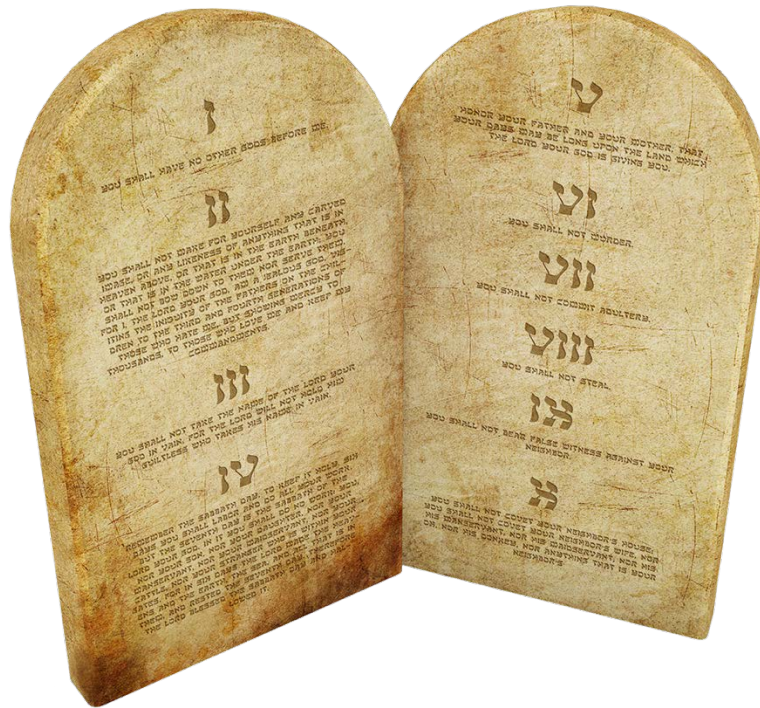 I
YOU SHALL HAVE NO OTHER GODS BEFORE ME.
II
YOU SHALL NOT MAKE FOR YOURSELF ANY CARVED
IMAGE, OR ANY LIKENESS OF ANYTHING THAT IS IN
HEAVEN ABOVE, OR THAT IS IN THE EARTH BENEATH,
OR THAT IS IN THE WATER UNDER THE EARTH; YOU
SHALL NOT BOW DOWN TO THEM NOR SERVE THEM.
FOR I, THE LORD YOUR GOD, AM A JEALOUS GOD, VIS-
ITING THE INIQUITY OF THE FATHERS ON THE CHIL-
DREN TO THE THIRD AND FOURTH GENERATIONS OF
THOSE WHO HATE ME, BUT SHOWING MERCY TO
THOUSANDS, TO THOSE WHO LOVE ME AND KEEP MY
COMMANDMENTS.
III
YOU SHALL NOT TAKE THE NAME OF THE LORD YOUR
GOD IN VAIN, FOR THE LORD WILL NOT HOLD HIM
GUILTLESS WHO TAKES HIS NAME IN VAIN.
IV
REMEMBER THE SABBATH DAY, TO KEEP IT HOLY. SIX
DAYS YOU SHALL LABOR AND DO ALL YOUR WORK,
BUT THE SEVENTH DAY IS THE SABBATH OF THE
LORD YOUR GOD. IN IT YOU SHALL DO NO WORK: YOU,
NOR YOUR SON, NOR YOUR DAUGHTER, NOR YOUR
MANSERVANT, NOR YOUR MAIDSERVANT, NOR YOUR
CATTLE, NOR YOUR STRANGER WHO IS WITHIN YOUR
GATES. FOR IN SIX DAYS THE LORD MADE THE HEAV-
ENS AND THE EARTH, THE SEA, AND ALL THAT IS IN
THEM, AND RESTED THE SEVENTH DAY. THEREFORE
THE LORD BLESSED THE SABBATH DAY AND HAL-
LOWED IT.
V
HONOR YOUR FATHER AND YOUR MOTHER, THAT
YOUR DAYS MAY BE LONG UPON THE LAND WHICH
THE LORD YOUR GOD IS GIVING YOU.
VI
YOU SHALL NOT MURDER.
VII
YOU SHALL NOT COMMIT ADULTERY.
VIII
YOU SHALL NOT STEAL.
IX
YOU SHALL NOT BEAR FALSE WITNESS AGAINST YOUR
NEIGHBOR.
X
YOU SHALL NOT COVET YOUR NEIGHBOR'S HOUSE;
YOU SHALL NOT COVET YOUR NEIGHBOR'S WIFE, NOR
HIS MANSERVANT, NOR HIS MAIDSERVANT, NOR HIS
OX, NOR HIS DONKEY, NOR ANYTHING THAT IS YOUR
NEIGHBOR'S